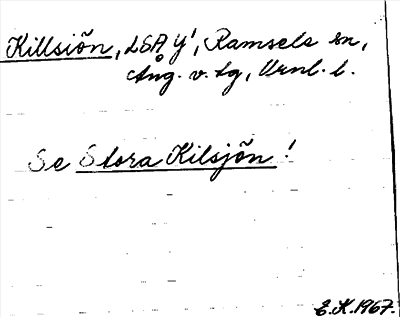 Killsiön, LSA y', Ramsele sn,
Ång. v. tg, Vrnl. l.
Se Stora Kilsjön!
E.K. 1967.